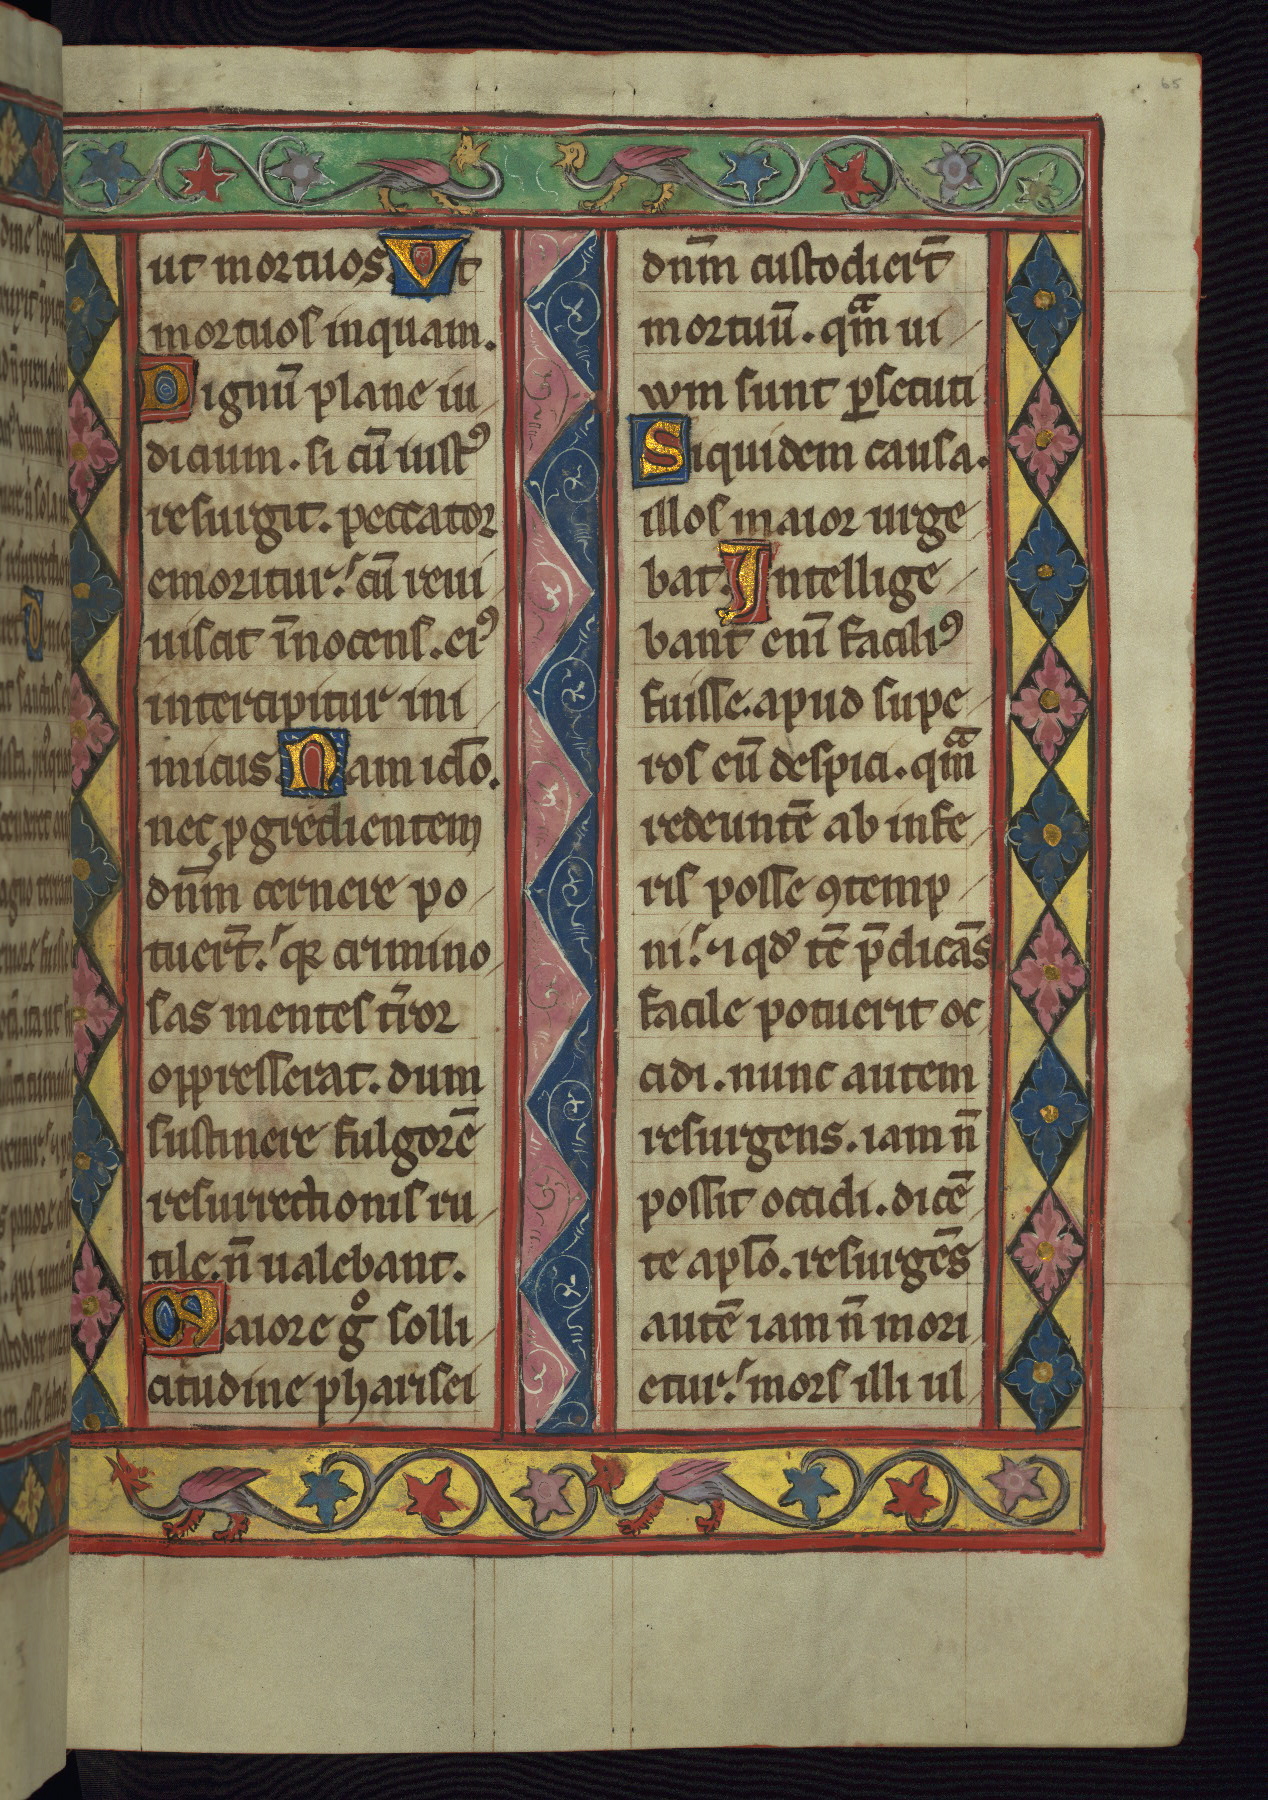 65
ut mortuos. Ut
mortuos inquam.
Dignū plane iu
dicium. si cū iustꝰ
resurgit. peccator
emoritur. cū reui
uiscit īnocens. eiꝰ
intercipitur ini
micus. Nam iclo.
nec ꝓgredientem
dn̄m cernere po
tuerт̄. qꝛ crimino
sas mentes t̄ror
oppresserat. dum
sustinere fulgorē
resurrectionis ru
tile. n̄ ualebant.
Maiore gͦ solli
citudine pharisei
dn̄m custodiert̄
mortuū. qm̄ ui
uum sunt ꝑsecuti
Siquidem causa.
illos maior urge
bat. Intellige
bant enī faciliꝰ
fuisse. apud supe
ros eū despici. qm̄
redeuntē ab infe
ris posse ꝯtemp
ni. ⁊ qđ tc̄ p̄dicās
facile potuerit oc
cidi. nunc autem
resurgens. iam n̄
possit occidi. dicē
te apl̄o. resurgēs
autē iam n̄ mori
etur. mors illi ul